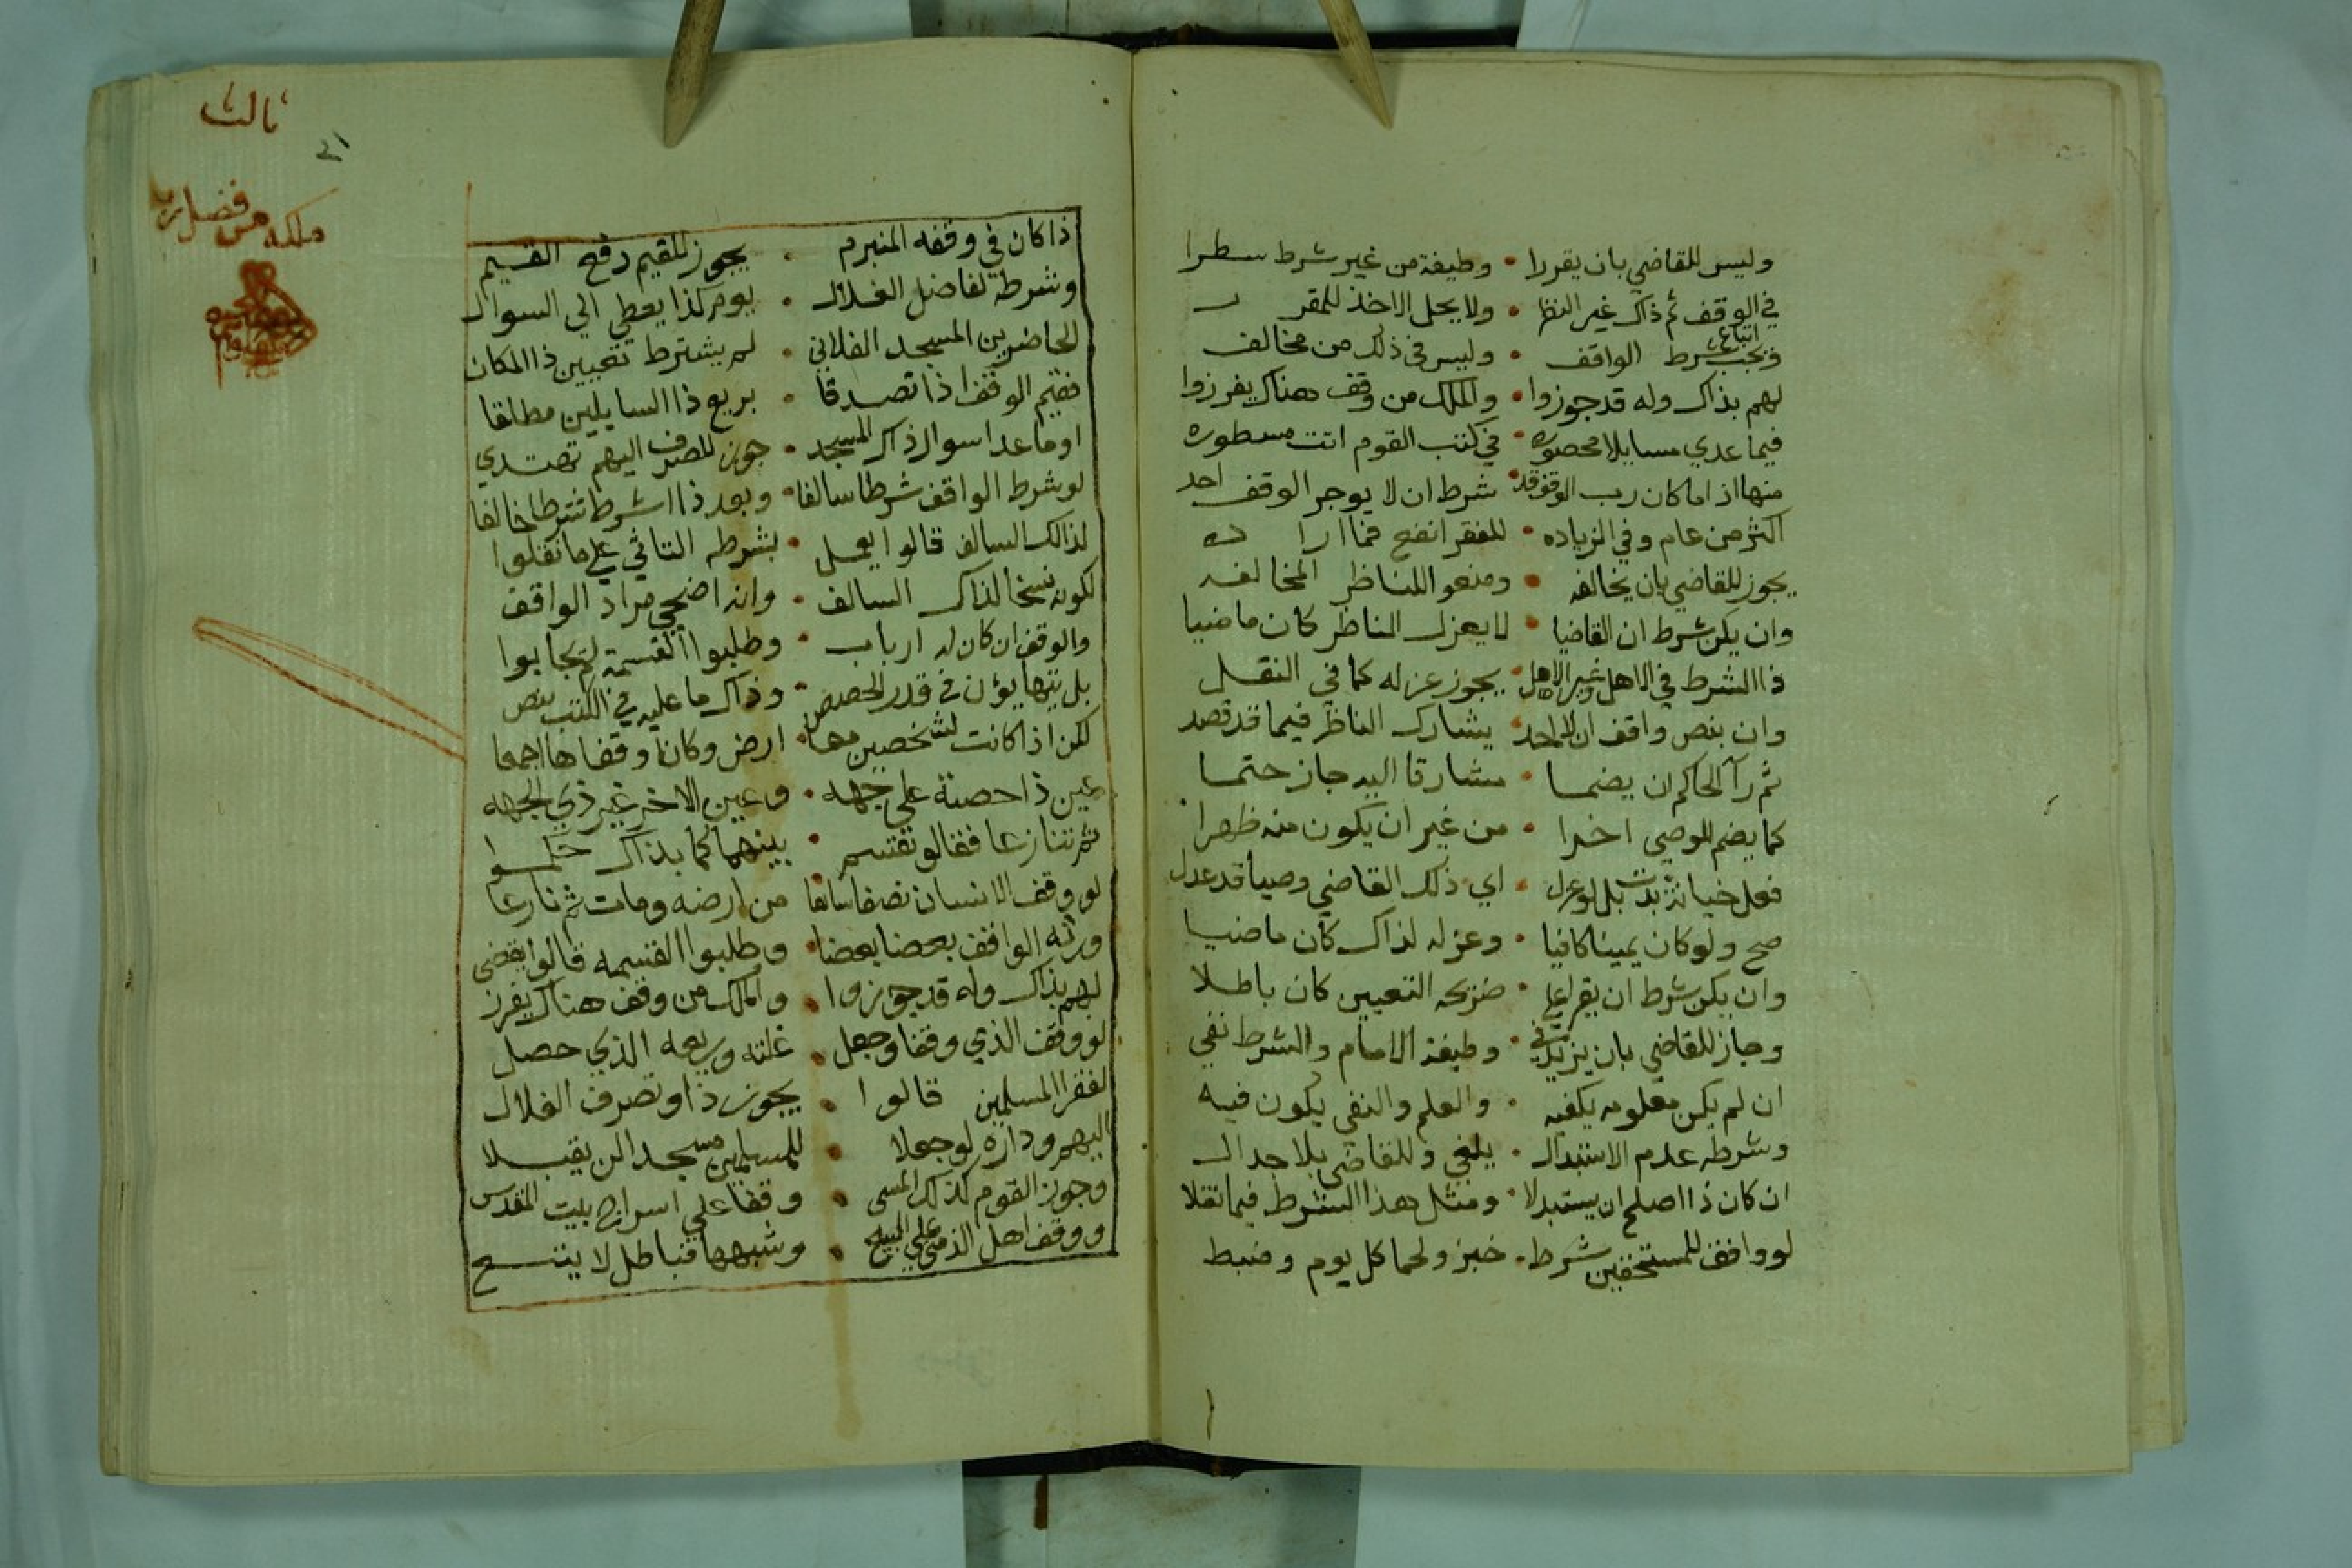 وليس للقاضي بان يقررا • وظيفة من غير شرط سطرا
في الوقف ثم ذاك غير النظر • ولا يحل الاخذ للمقرر
ويجب اتباع شرط الواقف • وليس في ذلك من مخالف
لهم بذاك وله قد جوزوا • والملك من وقف هناك يفرزوا
فيما عدي مسايلا محصوره • في كتب القوم اتت مسطوره
منها اذا ما كان رب الوقف قد • شرط ان لا يوجر الوقف احد
اكثر من عام وفي الزياده • للفقرا نفع فما اراده
يجوز للقاضي بان يخالفه • ومنعوا للناظر المخالفه
وان يكن شرط ان القاضيا • لا يعزل الناظر كان ماضيا
ذا الشرط في الاهل وغير الاهل • يجوز عزله كما في النقل
وان بنص واقف ان لا احد • يشارك الناظر فيما قد قصد
ثم رآ الحاكم ان يضما • مشارفا اليه جاز حتما
كما يضم للوصي اخرا • من غير ان يكون منه ظهرا
فعل خيانة بدت بل لو عزل • اي ذلك القاضي وصيا قد عدل
صح ولو كان يمينا كافيا • وعزله لذاك كان ماضيا
وان يكن شرط ان يقرا علي • ضريحه التعيين كان باطلا
وجاز للقاضي بان يزيد في • وظيفة الامام والشرط نفي
ان لم يكن معلومه يكفيه • والعلم والنفي يكون فيه
وشرطه عدم الاستبدال • يلغي وللقاضي بلا جدال
ان كان ذا اصلح ان يستبدلا • ومثل هذا الشرط فيما نقلا
لو واقف للمستحقين شرط • خبز ولحما كل يوم وضبط
ثالث
٣١
ملكه من فضل ربه
ذا كان في وقفه المنبرم • يجوز للقيم دفع القيم
وشرطه لفاضل الغلال • يوم كذا يعطي الي السوال
الحاضرين المسجد الفلاني • لم يشترط تعيين ذا المكان
فقيم الوقف اذا تصدقا • بريع ذا السايلين مطلقا
او ما عدا سوال ذاك المسجد • جوز للصرف اليهم تهتدي
لو شرط الواقف شرطا سالفا • وبعد ذا اشرط شرطا خالفا
لذالك السالف قالوا يعمل • بشرطه الثاني علي ما نقلوا
لكونه نسخا لذاك السالف • وانه اضحي مراد الواقف
والوقف ان كان له ارباب • وطلبوا القسمة لم يجابوا
بل يتهايؤن في قدر الحصص • وذاك ما عليه في الكتب بنص
لكن اذا كانت لشخصين معا • ارض وكانا وقفاها اجمعا
عين ذا حصته علي جهه • وعين الاخر غير ذي الجهه
ثم تنازعا فقالو تقتسم • بينهما كما بذاك حكموا
لو وقف الانسان نصفا شائعا من ارضه ومات ثم نازعا
ورثه الواقف بعضا بعضا • وطلبوا القسمه قالوا يقضي
لهم بذاك وله قد جوزوا • والملك من وقف هناك يفرز
لو وقف الذي وقفا وجعل • غلته وريعه الذي حصل
لفقرا المسلمين قالوا • يجوز ذا وتصرف الغلال
اليهم وداره لو جعلا • للمسلمين مسجدا لن يقبلا
وجوز القوم كذلك المسي • وقفا علي اسراج بيت المقدس
ووقف اهل الذمي علي البيع • وشبهها فباطل لا يتسع